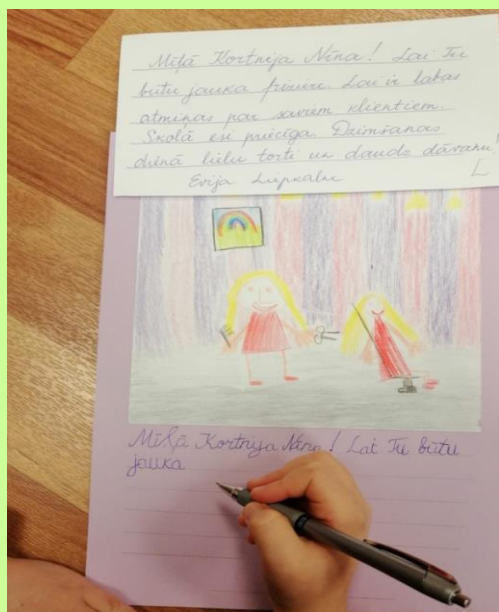 Mīļā Kortnija Nīna! Lai Tu
būtu jauka friziere. Lai ir labas
atmiņas par saviem klientiem.
Skolā esi priecīga. Dzimšanas
dienā lielu torti un daudz dāvanu!
Evija Liepkalne
Mīļā Kortnija Nīna! Lai Tu būtu
jauka